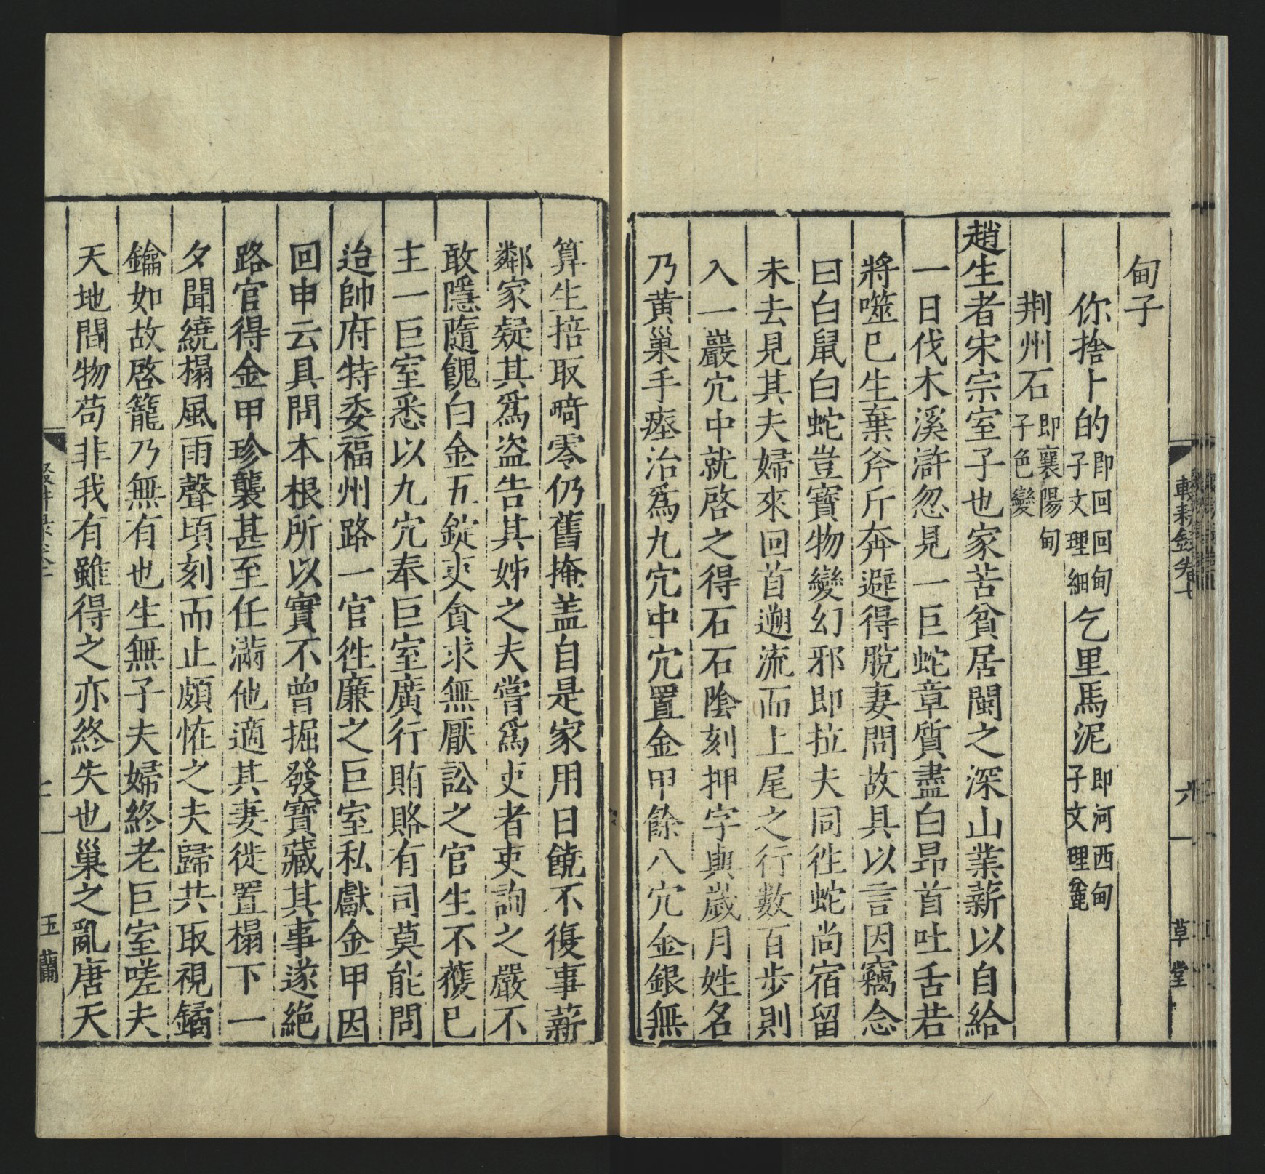 甸子
你捨卜的即回回甸子文理細乞里馬泥即河西甸子文理麄
荆州石即襄陽甸子色變
趙生者宋宗室子也家苦貧居閩之深山業薪以自給
一日伐木溪滸忽見一巨蛇章質盡白昂首吐舌若
將噬已生棄斧斤奔避得脫妻問故具以言因竊念
曰白鼠白蛇豈寶物變幻邪即拉夫同徃蛇尚宿留
未去見其夫婦來回首遡流而上尾之行數百步則
入一巖穴中就啓之得石石陰刻押字與歲月姓名
乃黄巢手瘞治爲九穴中穴置金甲餘八穴金銀無
算生掊取畸零仍舊掩盖自是家用日饒不復事薪
鄰家疑其爲盗告其姊之夫嘗爲吏者吏詢之嚴不
敢隱隨餽白金五錠吏貪求無厭訟之官生不獲已
主一巨室悉以九穴奉巨室廣行賄賂有司莫能問
迨帥府特委福州路一官徃廉之巨室私獻金甲因
回申云具問本根所以實不曾掘發寶藏其事遂絕
路官得金甲珍襲甚至任滿他適其妻徙置榻下一
夕聞繞榻風雨聲頃刻而止頗恠之夫歸共取視鐍
鑰如故啓籠乃無有也生無子夫婦終老巨室嗟夫
天地間物苟非我有雖得之亦終失也巢之亂唐天
輟耕錄卷七
六
草堂
玉蘭